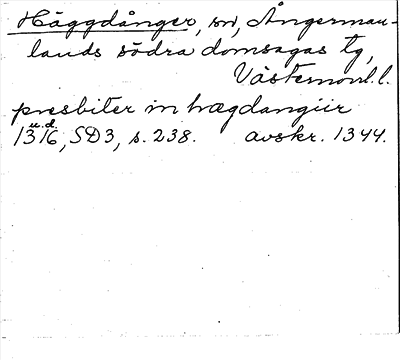 Häggdånger, sn, Ångerman-
lands södra domsagas tg,
Västernorrl. l.
presbiter in hægdangiir
u. d.
1316, SD3, s. 238. avskr. 1344.